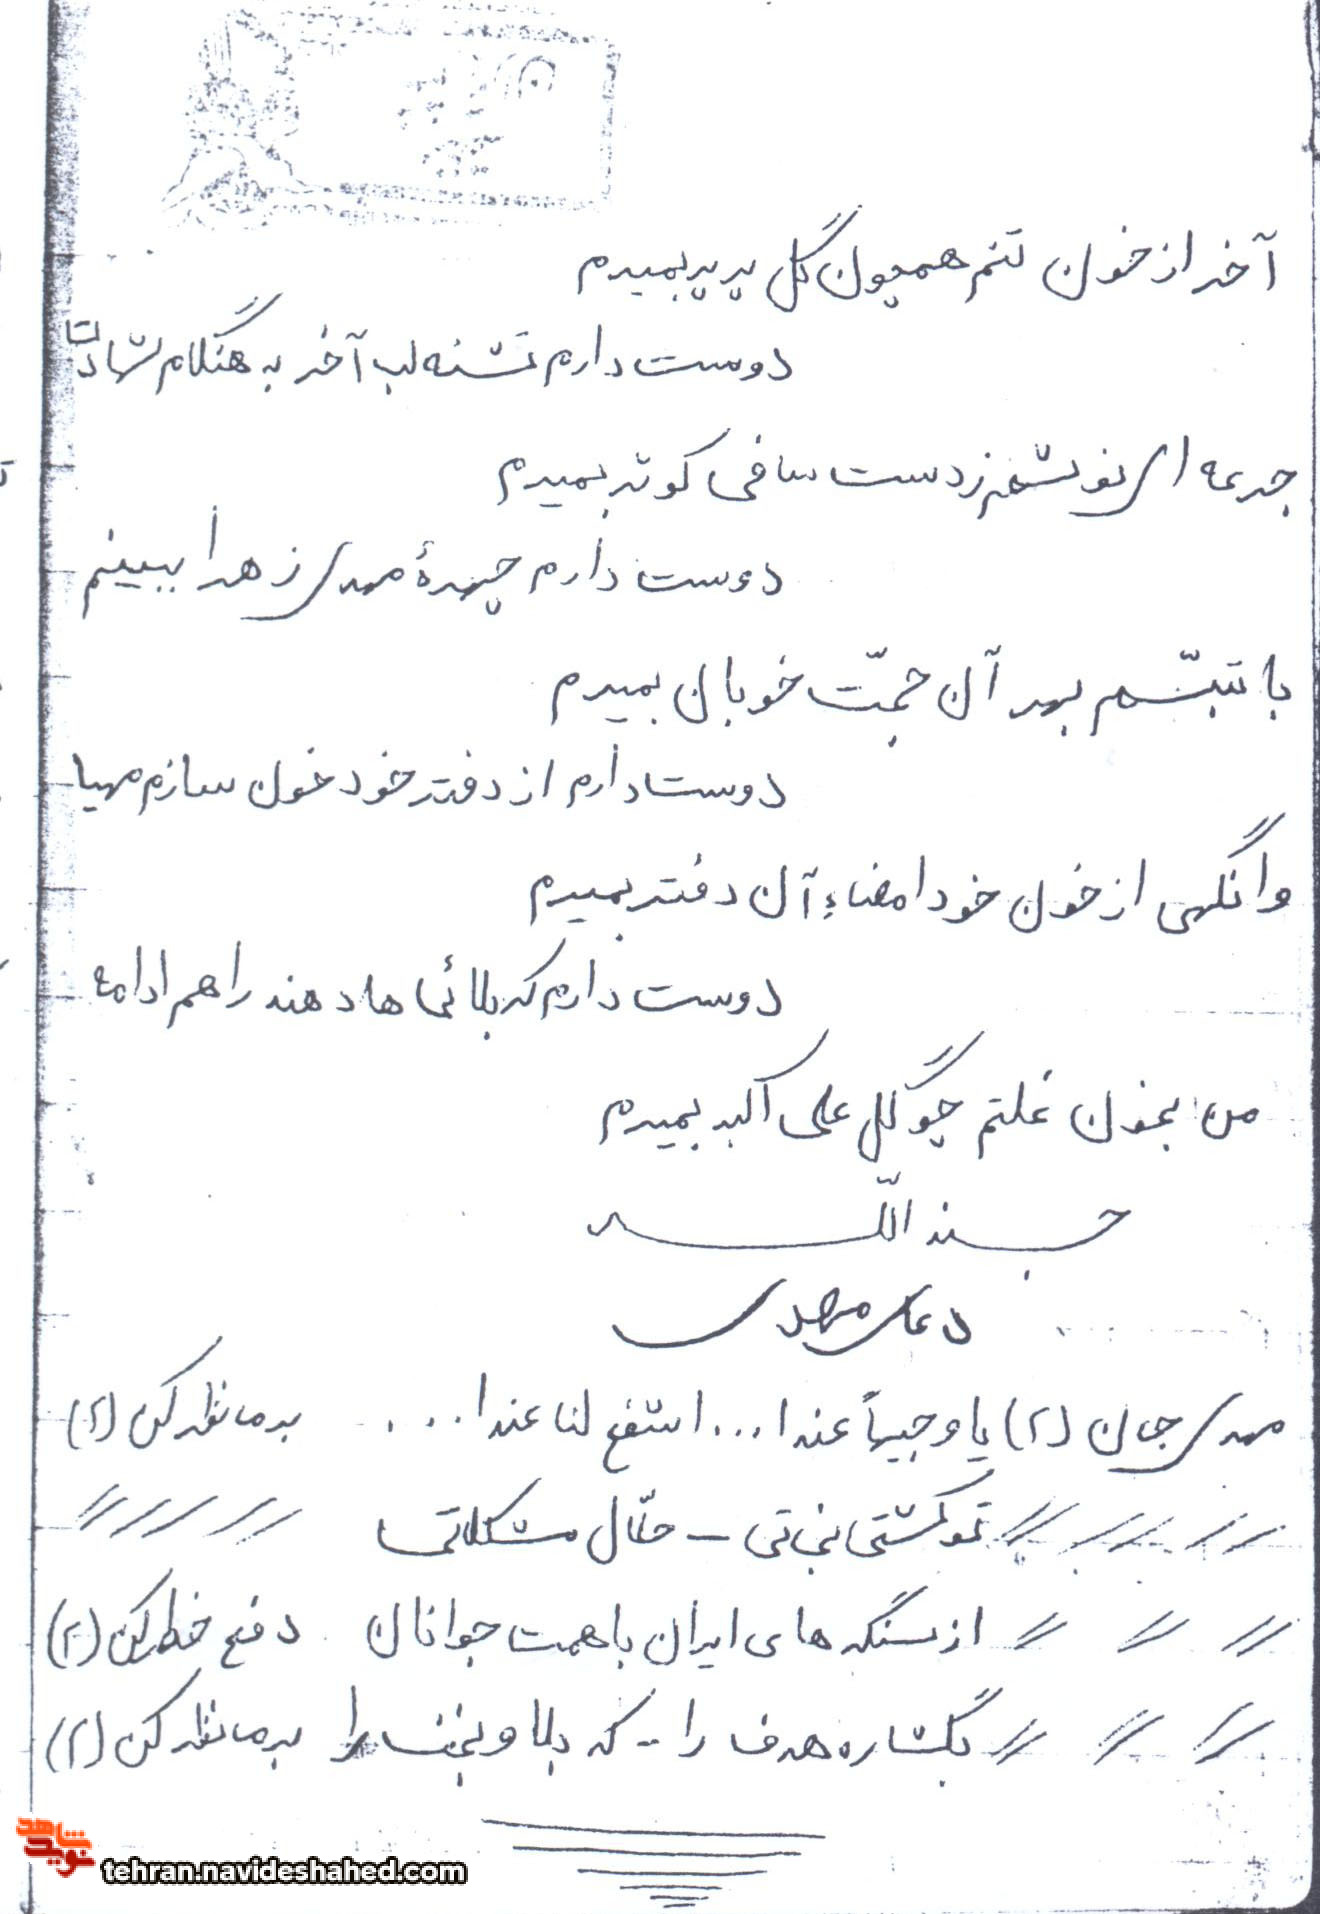 آخر از خون تنم همچون گل پرپر بمیرم
دوست دارم تشنه لب آخر به هنگام شهادت
جرعه ای نوشم ز دست ساقی کوثر بمیرم
دوست دارم چهرهٔ مهدی زهرا ببینم
با تبسّم بهر آن حجّت خوبان بمیرم
دوست دارم از دفتر خود خون سازم مهیا
وانگهی از خون خود امضاء آن دفتر بمیرم
دوست دارم کربلائی ها دهند راهم ادامه
من بخون غلتم چو گل علی اکبر بمیرم
جند اللّه
دعای مهدی
مهدی جان (۲) یا وجیهاً عندا... اشفع لنا عندا.... بر ما نظر کن (۲)
〃 〃 〃 〃 〃 تو کشتی نجاتی - حلّال مشکلاتی 〃 〃 〃 〃 〃
〃 〃 〃 از سنگر های ایران با همت جوانان دفع خطر کن (۲)
〃 〃 〃 بگشا ره هدف را - کربلا و نجف را بر ما نظر کن (۲)
نوید شاهد
tehran.navideshahed.com